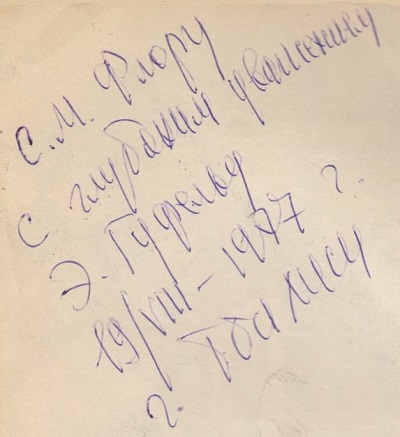 С. М. Флору
с глубоким уважением
Э. Гуфельд
19/VIII - 1977 г.
г. Тбилиси